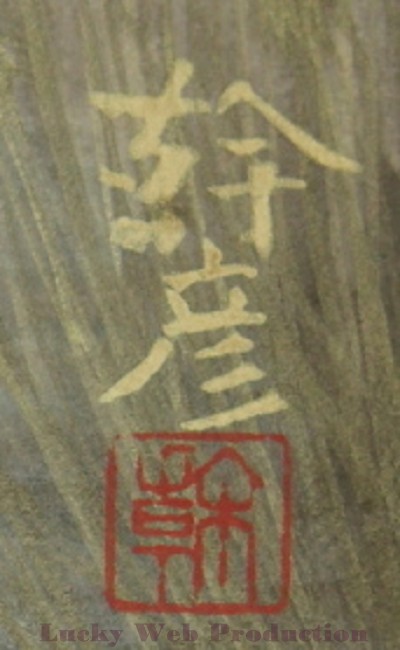 幹
彦
榦
Lucky Web Production